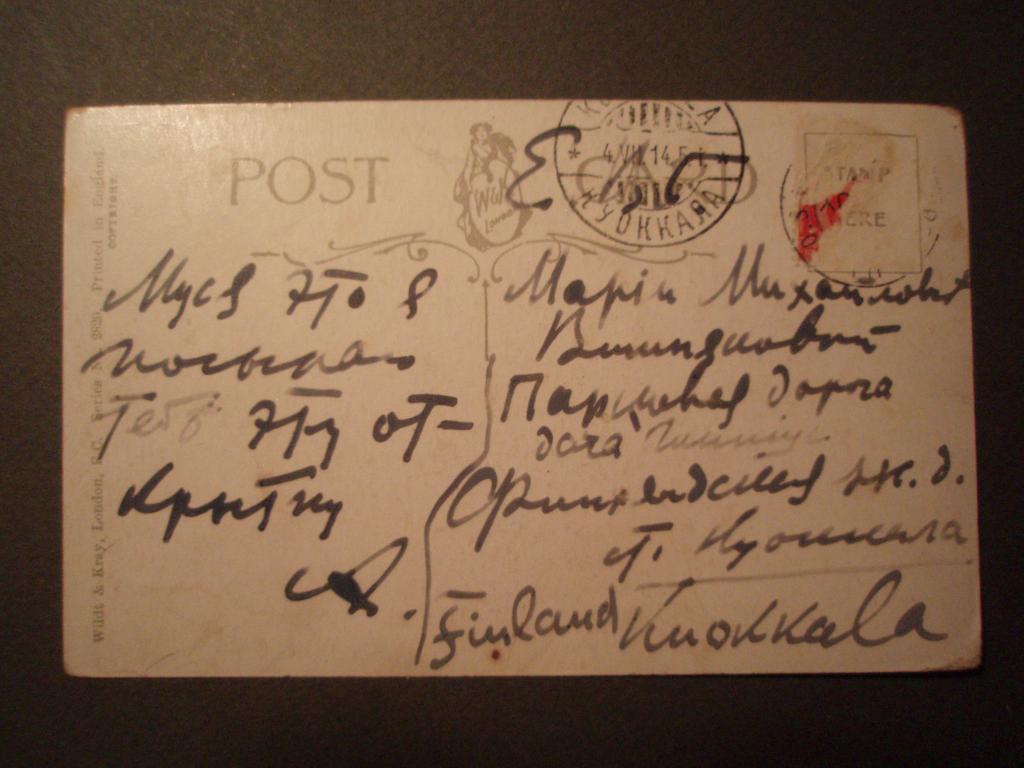 POST CARD
W&K
London
Wildt & Kray, London, E.C. Series No 2820. Printed in England.
COPYRIGHT.
STAMP
HERE
4.VII.14
КУОККАЛА
Е. В.
Муся это я
посылаю
Тебѣ эту от-
крытку
Я.
Маріи Михайловнѣ
Вишняковой
Парковая дорога
дача
Финляндская ж. д.
ст. Куоккала
Finland Kuokkala